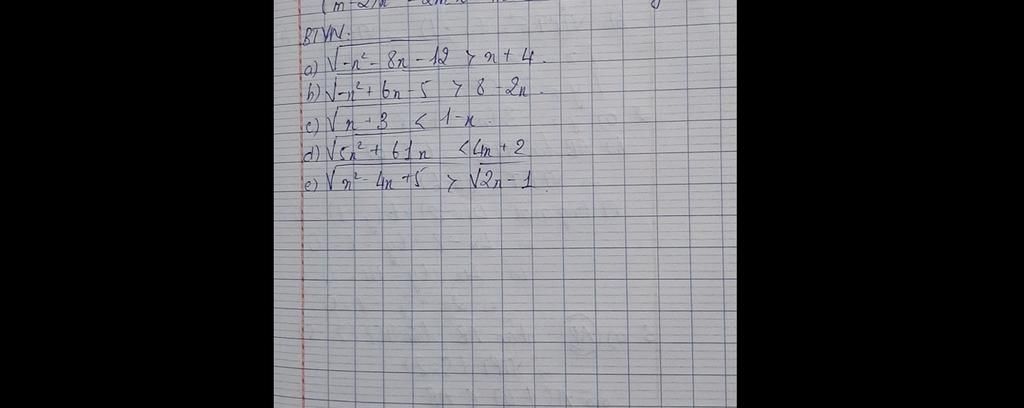 BTVN.
a) √-x² - 8x - 12 > x + 4.
b) √-x² + 6x - 5 > 8 - 2x.
c) √x + 3 < 1 - x.
d) √5x² + 61x < 4x + 2
e) √x² - 4x + 5 > √2x - 1.